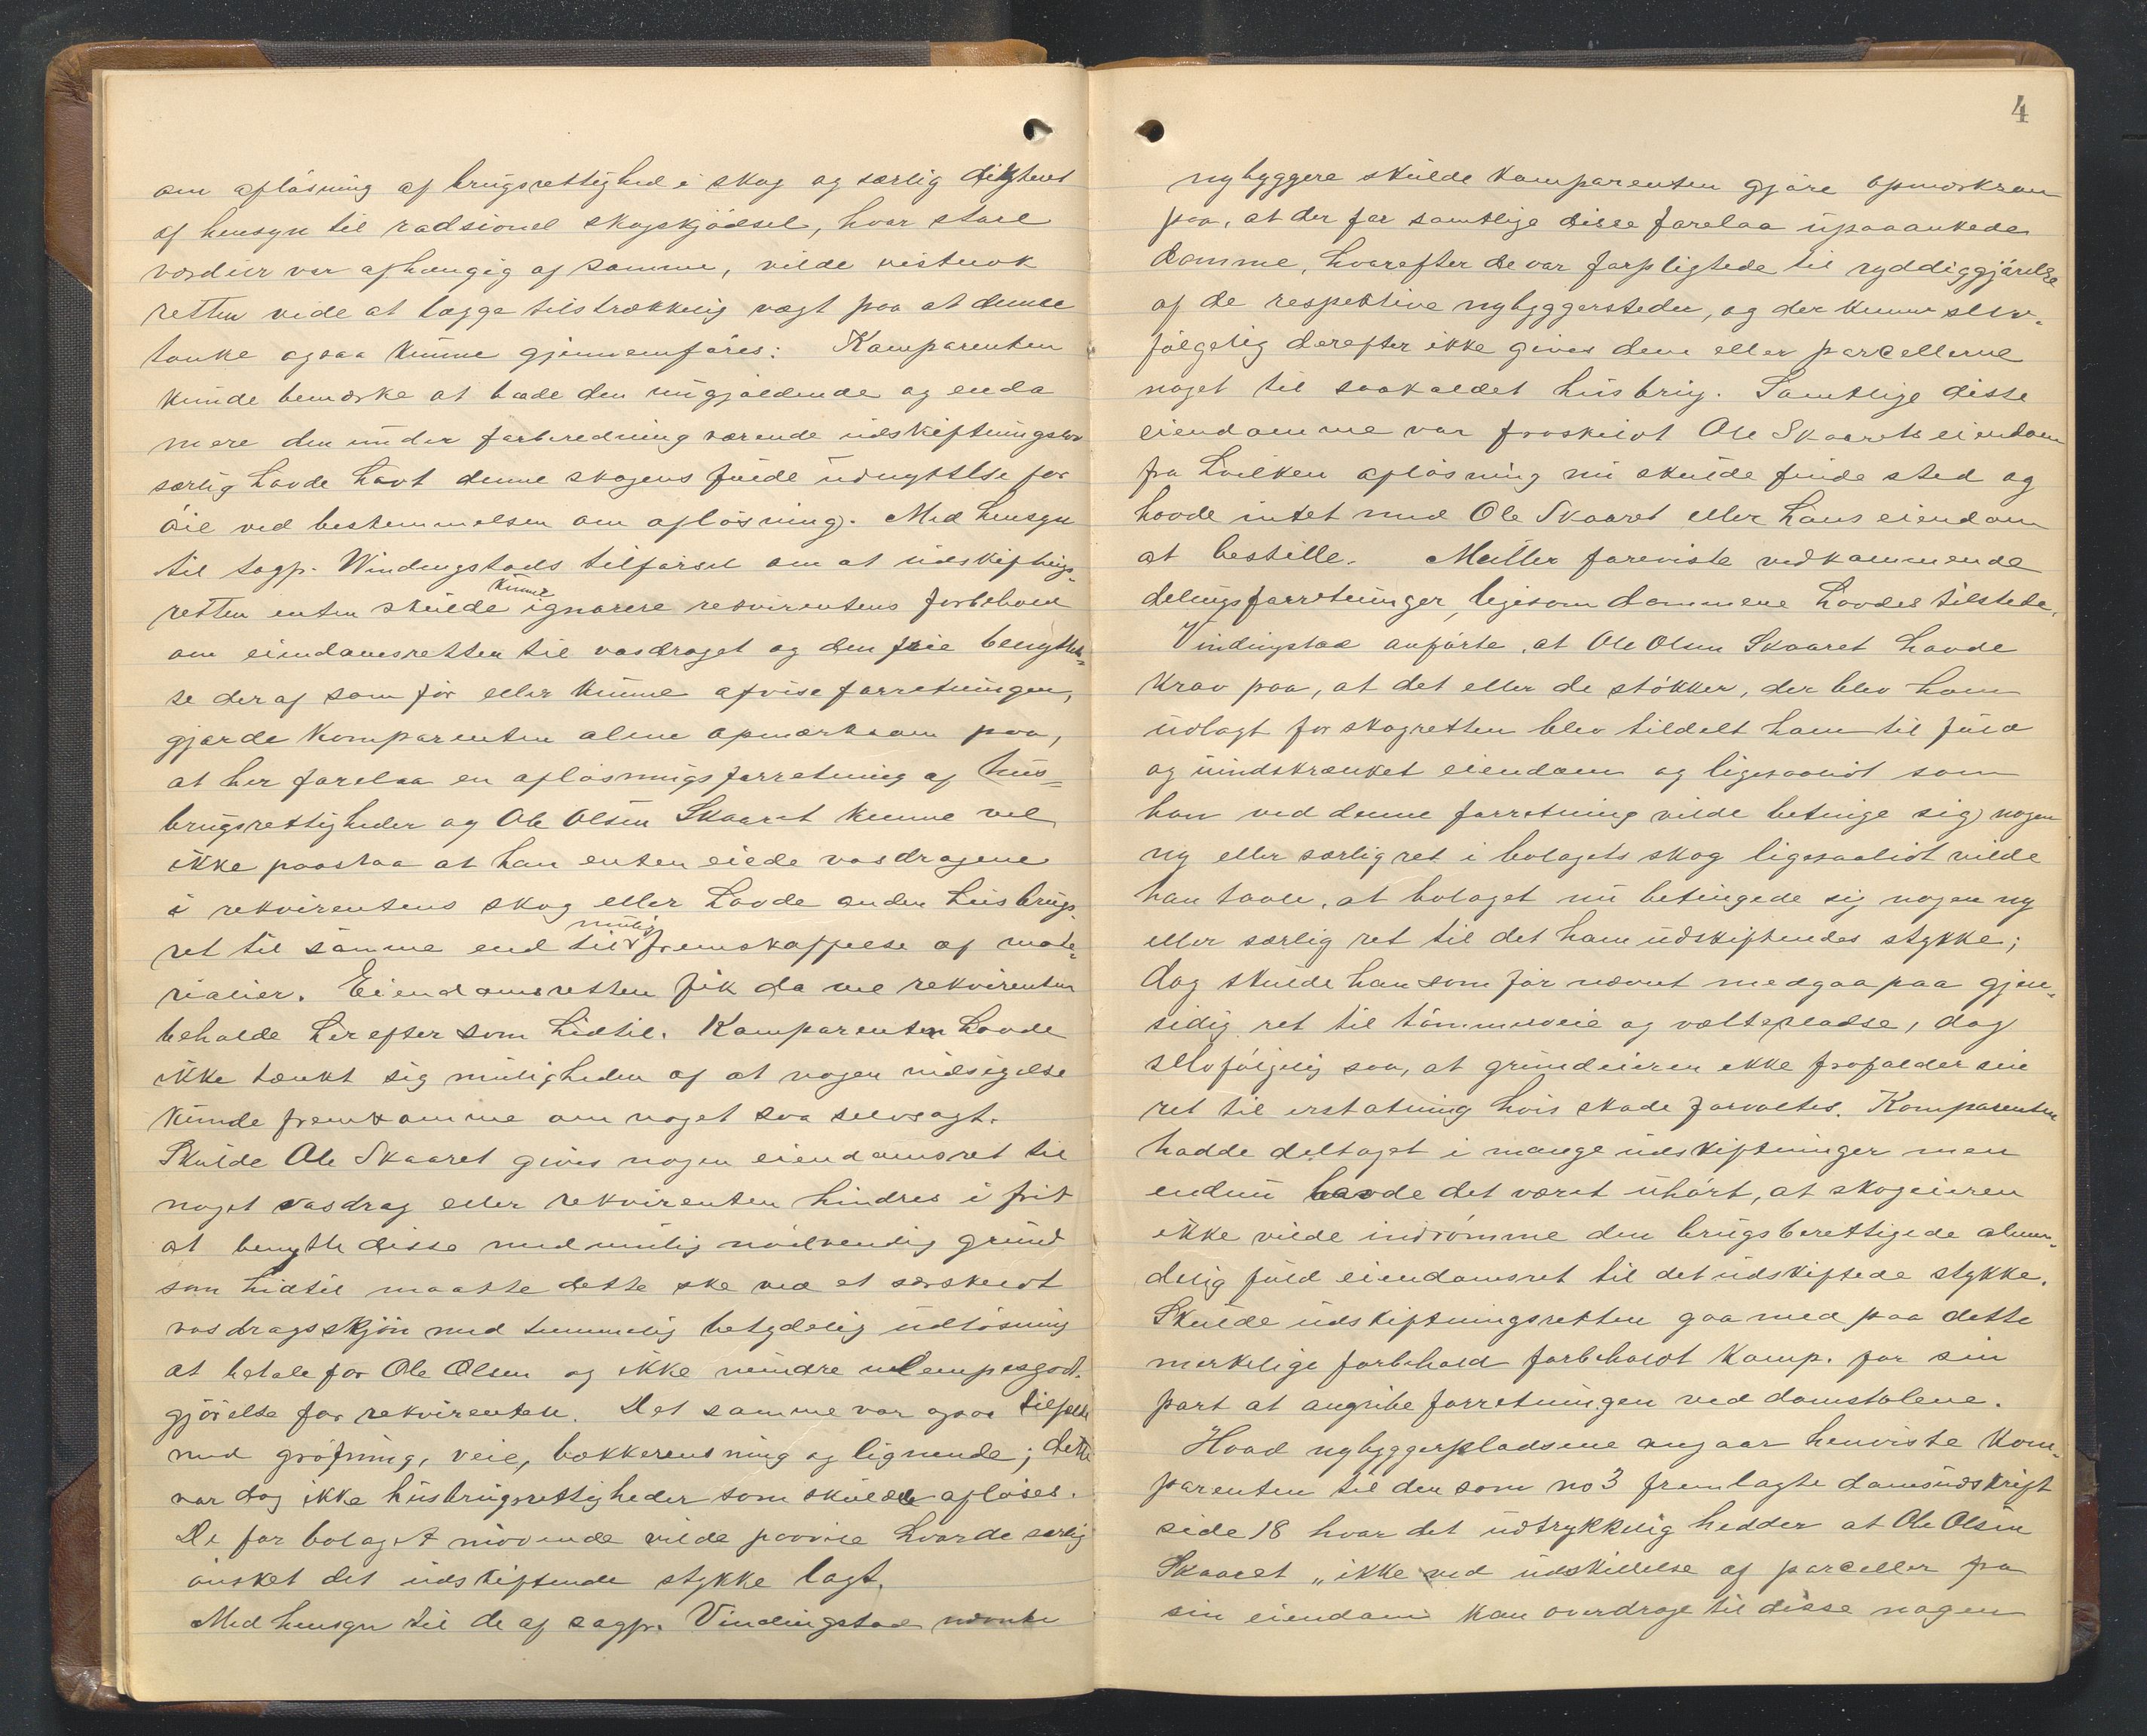 om aflösning af brugsrettighed i skog og særlig
af hensyn til radsionel skogskjödsel, hvor store
værdier var afhængig af samme, vilde vistnok
retten vide at lægge tilstrækkelig vægt paa at denne
tanke ogsaa kunne gjennemföres: Komparenten
kunde bemærke at bade den nugjældende og enda
mere den under forberedning værende udskiftningslov
særlig havde havt denne skogens fulde udnyttelse for
öie ved bestemmelsen om aflösning. Med hensyn
til sagf. Windingstads tilförsel om at udskiftnings-
retten enten skulde kunne ignorere rekvirentens forbehold
om eiendomsretten til vasdraget og den frie benyttel-
se deraf som för eller kunne afvise forretningen,
gjorde komparenten alene opmærksom paa,
at her forelaa en aflösningsforretning af hus-
brugsrettigheder og Ole Olsen Skaaret kunne vel
ikke paastaa at han enten eiede vasdragene
i rekvirentens skog eller havde anden husbrugs-
ret til samme end til mulig fremskaffelse af mate-
rialier. Eiendomsretten fik da vel rekvirenten
beholde herefter som hidtil. Komparenten havde
ikke tænkt sig muligheden af at nogen indsigelse
kunde fremkomme om noget saa selvsagt.
Skulde Ole Skaaret gives nogen eiendomsret til
noget vasdrag eller rekvirenten hindres i frit
at benytte disse med mulig nödvendig grund
som hidtil maatte dette ske ved et særskildt
vasdragsskjön med temmelig betydelig udlösning
at betale for Ole Olsen og ikke mindre ulempesgodt-
gjörelse for rekvirenten. Det samme var ogsaa tilfælde
med gröfning, veie, bækkerensning og lignende; dette
var dog ikke husbrugsrettigheder som skulde aflöses.
De for bolaget mödende vilde paavise hvor de særlig
önsket det udskiftende stykke lagt.
Med hensyn til de af sagf. Vindingstad nævnte
4
nybyggere skulde komparenten gjöre opmærksom
paa, at der for samtlige disse forelaa upaaankede
domme, hvorefter de var forpligtede til ryddiggjörelse
af de respektive nybyggersteder, og der kunne selv-
fölgelig derefter ikke gives dem eller parcellerne
noget til saakaldet husbrug. Samtlige disse
eiendomme var fraskildt Ole Skaarets eiendom
fra hvilken aflösning nu skulde finde sted og
havde intet med Ole Skaaret eller hans eiendom
at bestille. Müller foreviste vedkommende
delingsforretninger, ligesom dommene havdes tilstede.
Vindingstad anförte, at Ole Olsen Skaaret havde
krav paa, at det eller de stökker, der blev ham
udlagt for skogretten blev tildelt ham til fuld
og uindskrænket eiendom og ligesaalidt som
han ved denne forretning vilde betinge sig nogen
ny eller særlig ret i bolagets skog ligesaalidt vilde
han taale, at bolaget nu betingede sig nogen ny
eller særlig ret til det ham udskiftendes stykke;
dog skulde han som för nævnt medgaa paa gjen-
sidig ret til tömmerveie og væltepladse, dog
selvfölgelig saa, at grundeieren ikke frafalder sin
ret til erstatning hvis skade forvoltes. Komparenten
hadde deltaget i mange udskiftninger men
endnu havde det været uhört, at skogeieren
ikke vilde indrömme den brugsberettigede almin-
delig fuld eiendomsret til det udskiftede stykke.
Skulde udskiftningsretten gaa med paa dette
merkelige forbehold forbeholdt komp. for sin
part at angribe forretningen ved domstolene.
Hvad nybyggerpladsene angaar henviste kom-
parenten til den som no 3 fremlagte domsudskrift
side 18 hvor det udtrykkelig hedder at Ole Olsen
Skaaret „ikke ved udskillelse af parceller fra
sin eiendom kan overdrage til disse nogen